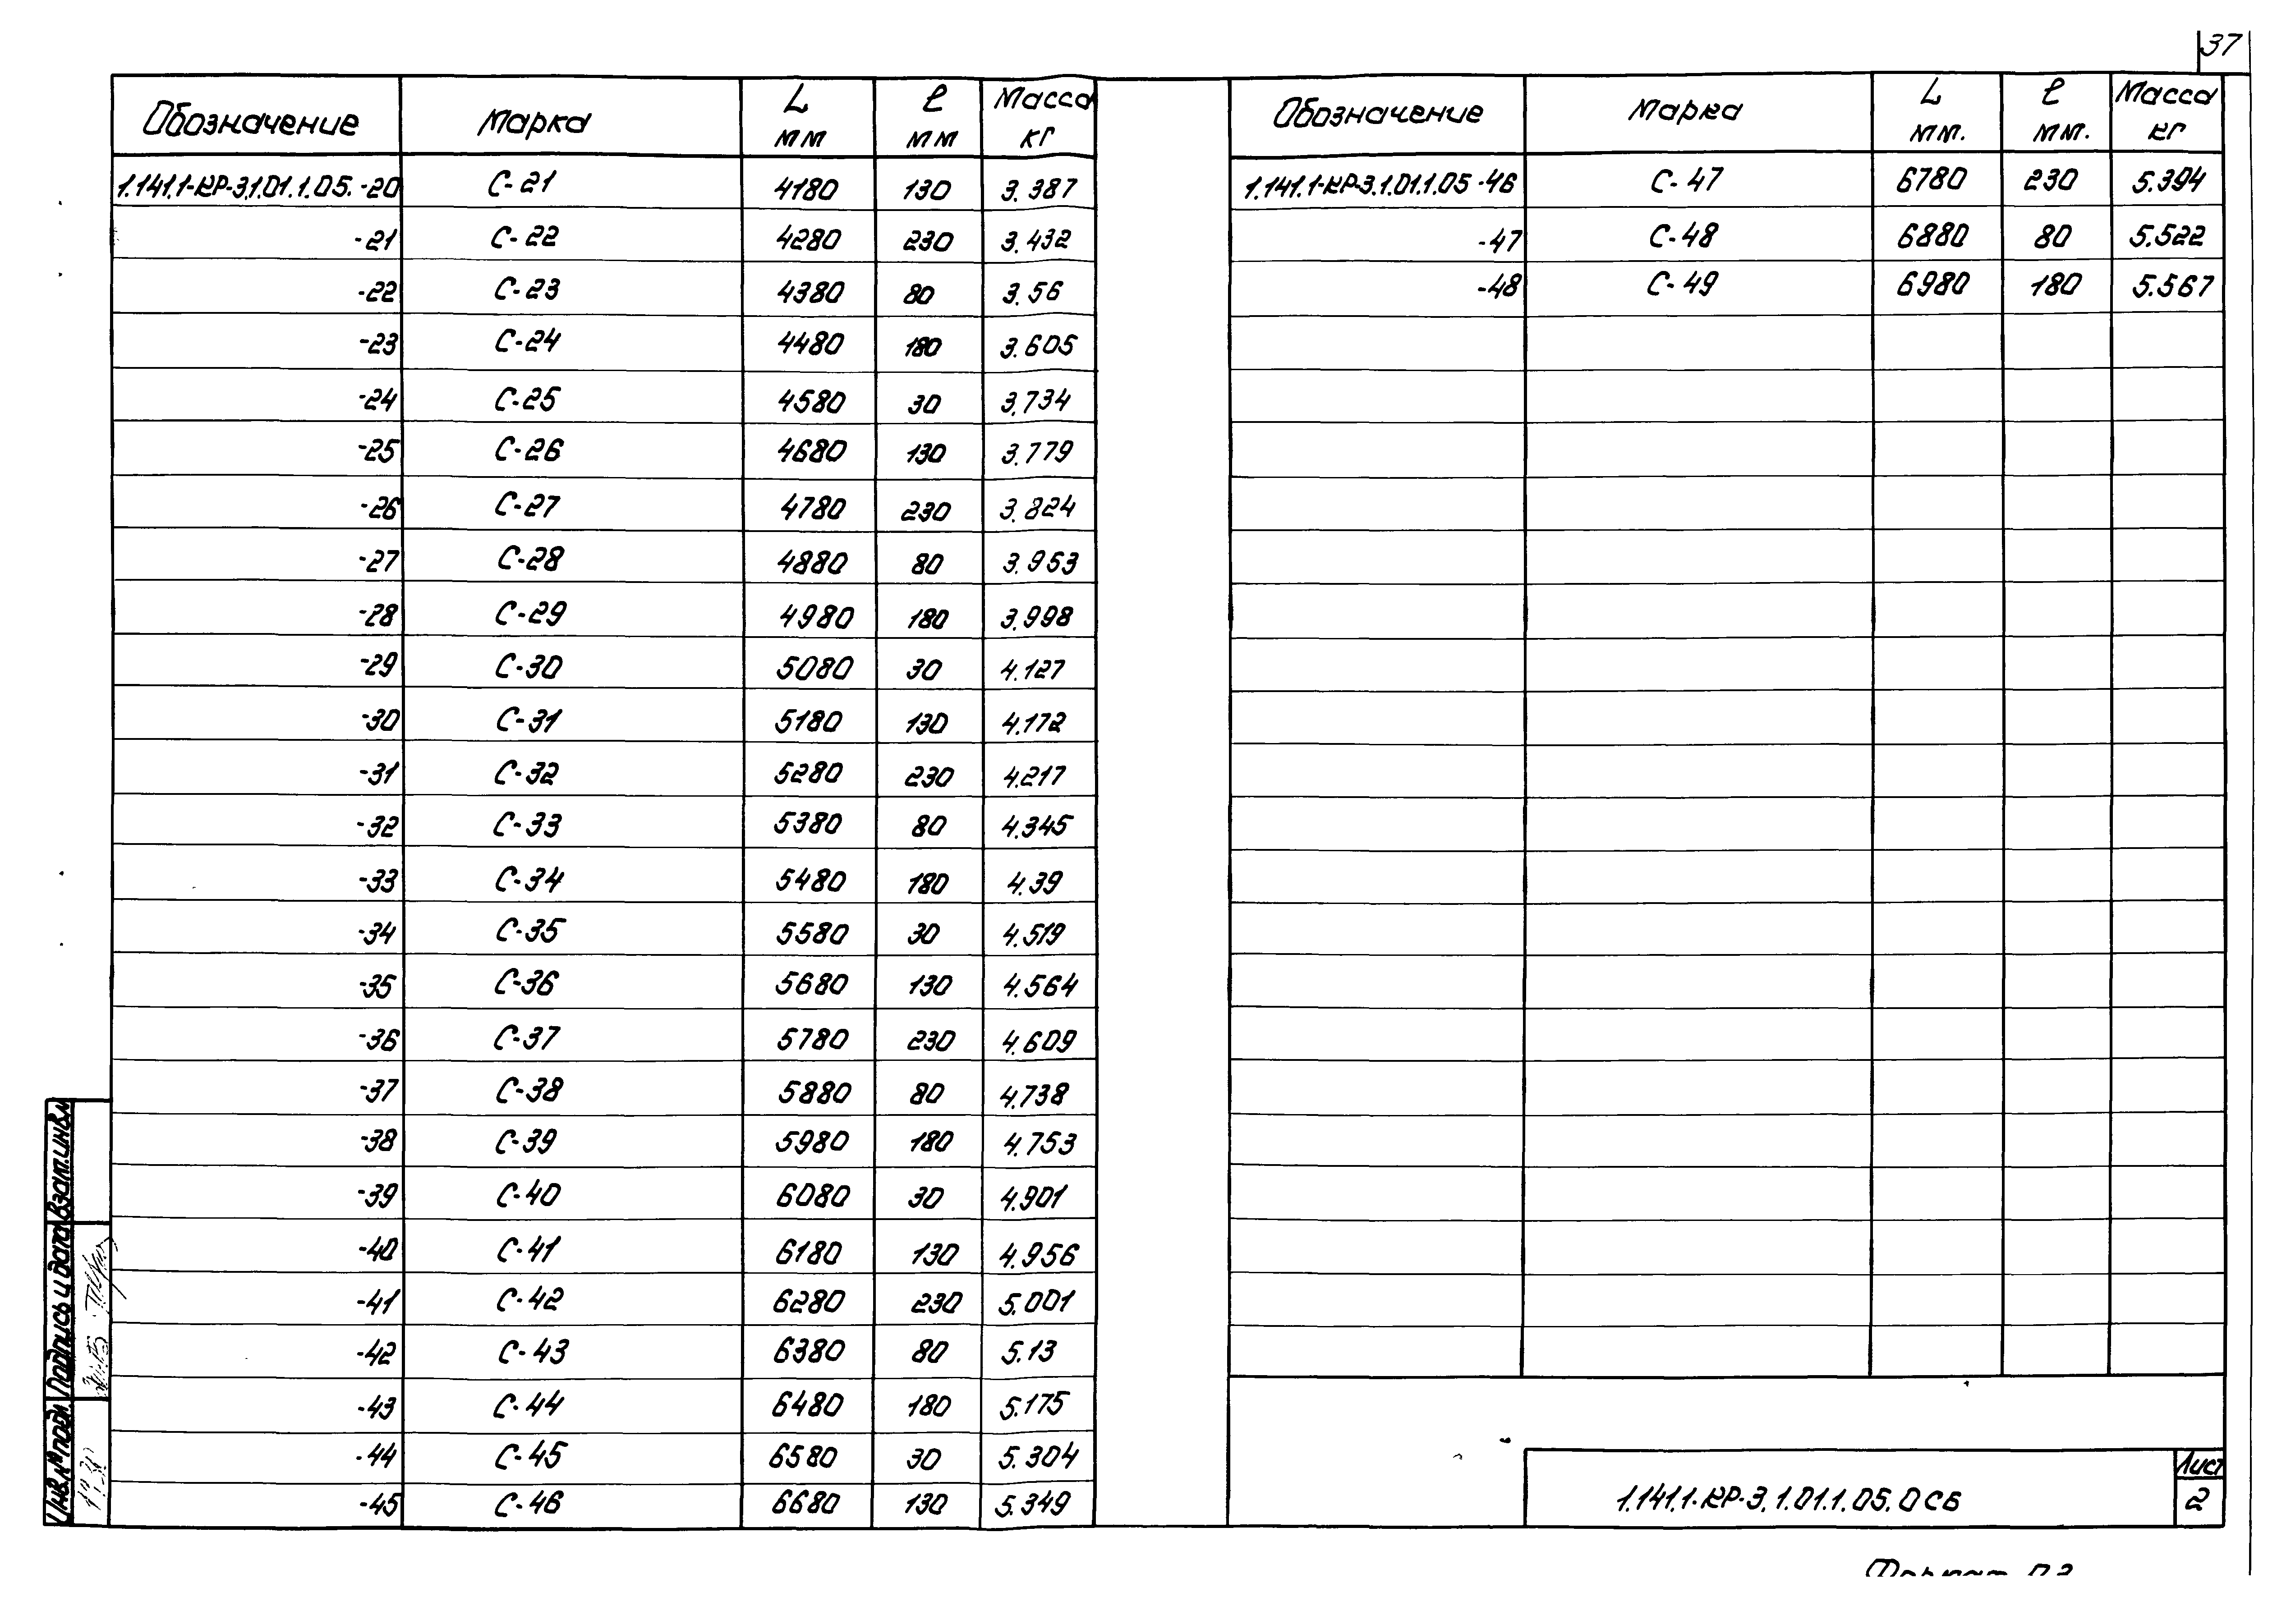 37
Обозначение Марка L мм ℓ мм Масса кг
1.141.1-КР-3.1.01.1.05.-20 С-21 4180 130 3.387
-21 С-22 4280 230 3.432
-22 С-23 4380 80 3.56
-23 С-24 4480 180 3.605
-24 С-25 4580 30 3.734
-25 С-26 4680 130 3.779
-26 С-27 4780 230 3.824
-27 С-28 4880 80 3.953
-28 С-29 4980 180 3.998
-29 С-30 5080 30 4.127
-30 С-31 5180 130 4.172
-31 С-32 5280 230 4.217
-32 С-33 5380 80 4.345
-33 С-34 5480 180 4.39
-34 С-35 5580 30 4.519
-35 С-36 5680 130 4.564
-36 С-37 5780 230 4.609
-37 С-38 5880 80 4.738
-38 С-39 5980 180 4.753
-39 С-40 6080 30 4.901
-40 С-41 6180 130 4.956
-41 С-42 6280 230 5.001
-42 С-43 6380 80 5.13
-43 С-44 6480 180 5.175
-44 С-45 6580 30 5.304
-45 С-46 6680 130 5.349
Обозначение Марка L мм. ℓ мм. Масса кг
1.141.1-КР-3.1.01.1.05-46 С-47 6780 230 5.394
-47 С-48 6880 80 5.522
-48 С-49 6980 180 5.567
1.141.1-КР-3.1.01.1.05.0 СБ
Лист
2
Взам.инв.№
Подпись и дата
Инв.№подл.